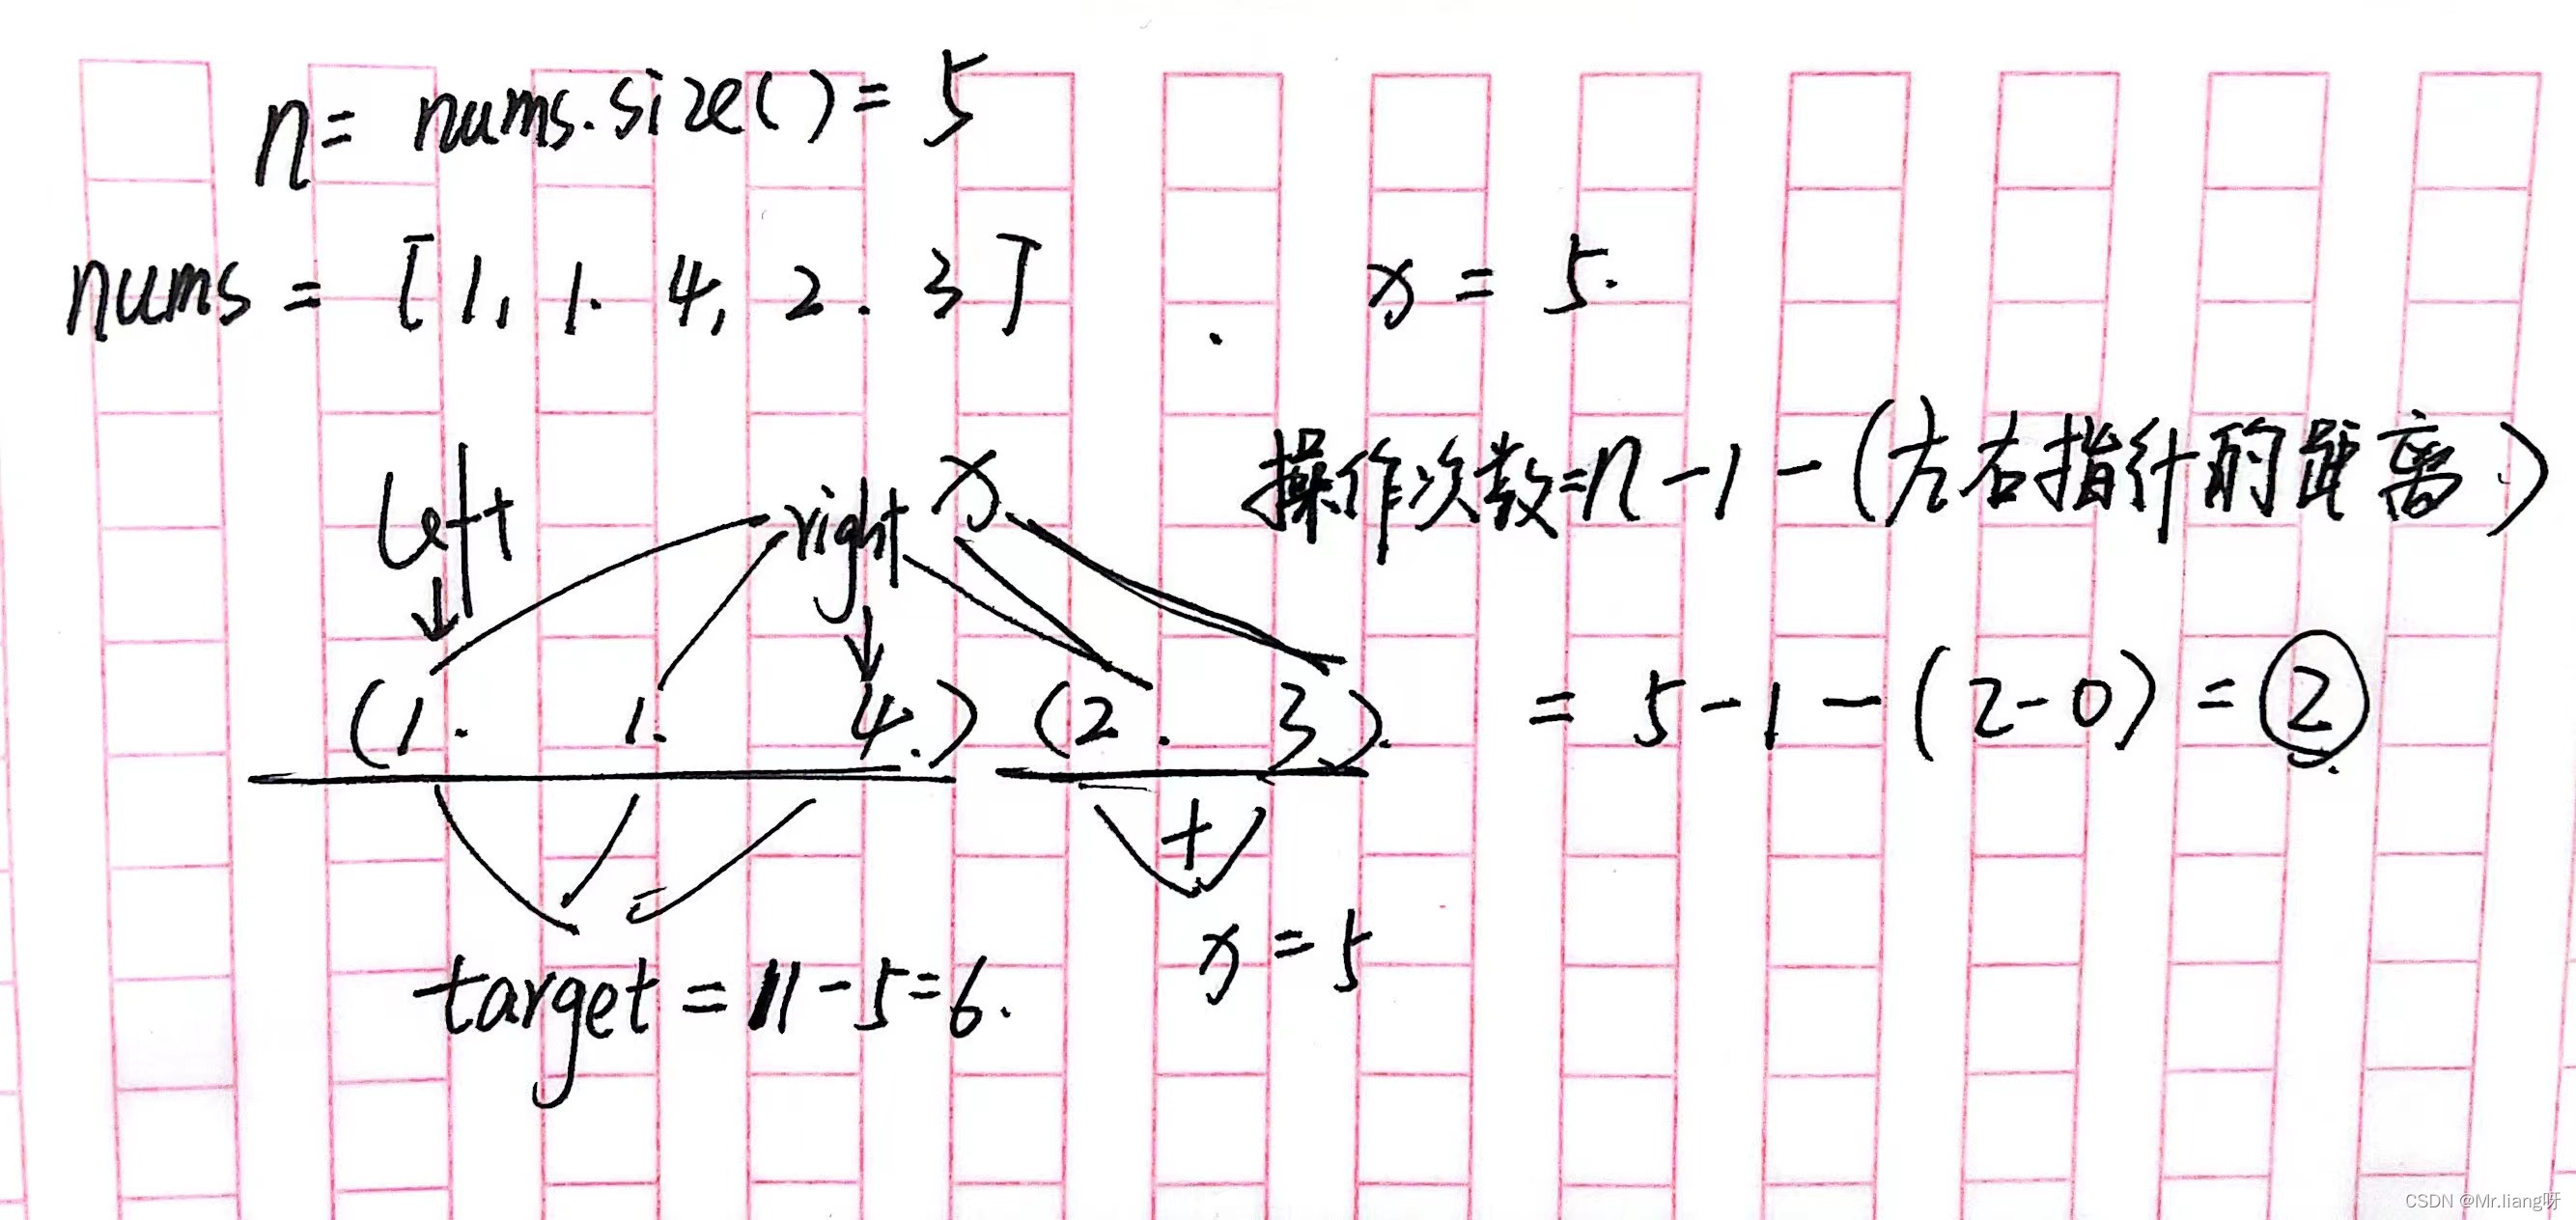 n= nums.size()= 5
nums = [1, 1. 4, 2. 3] . x = 5.
left right x 操作次数=n-1-(左右指针的距离.)
(1. 1. 4.) (2. 3). = 5-1-(2-0) = 2
+
target = 11-5=6. x=5
CSDN @Mr.liang呀